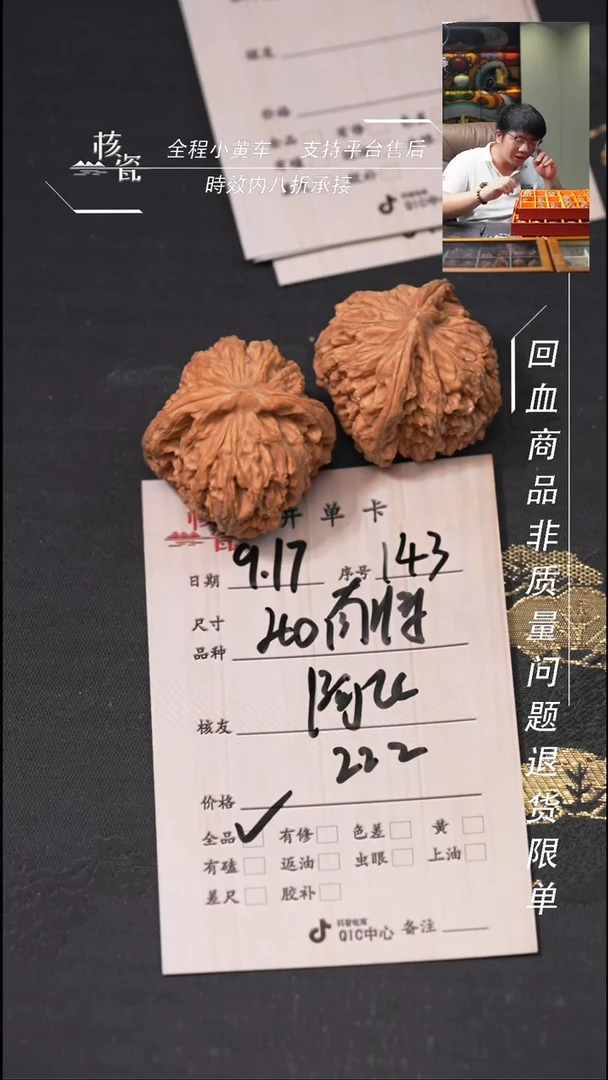 核瓷
全程小黄车 支持平台售后
時效内八折承接
价格
QIC中
回血商品非质量问题退货限单
开单卡
日期 9.17 序号 143
尺寸
品种 40
核友
222
价格
全品 有修 色差 黄
有磕 返油 虫眼 上油
差尺 胶补
抖音电商
QIC中心 备注